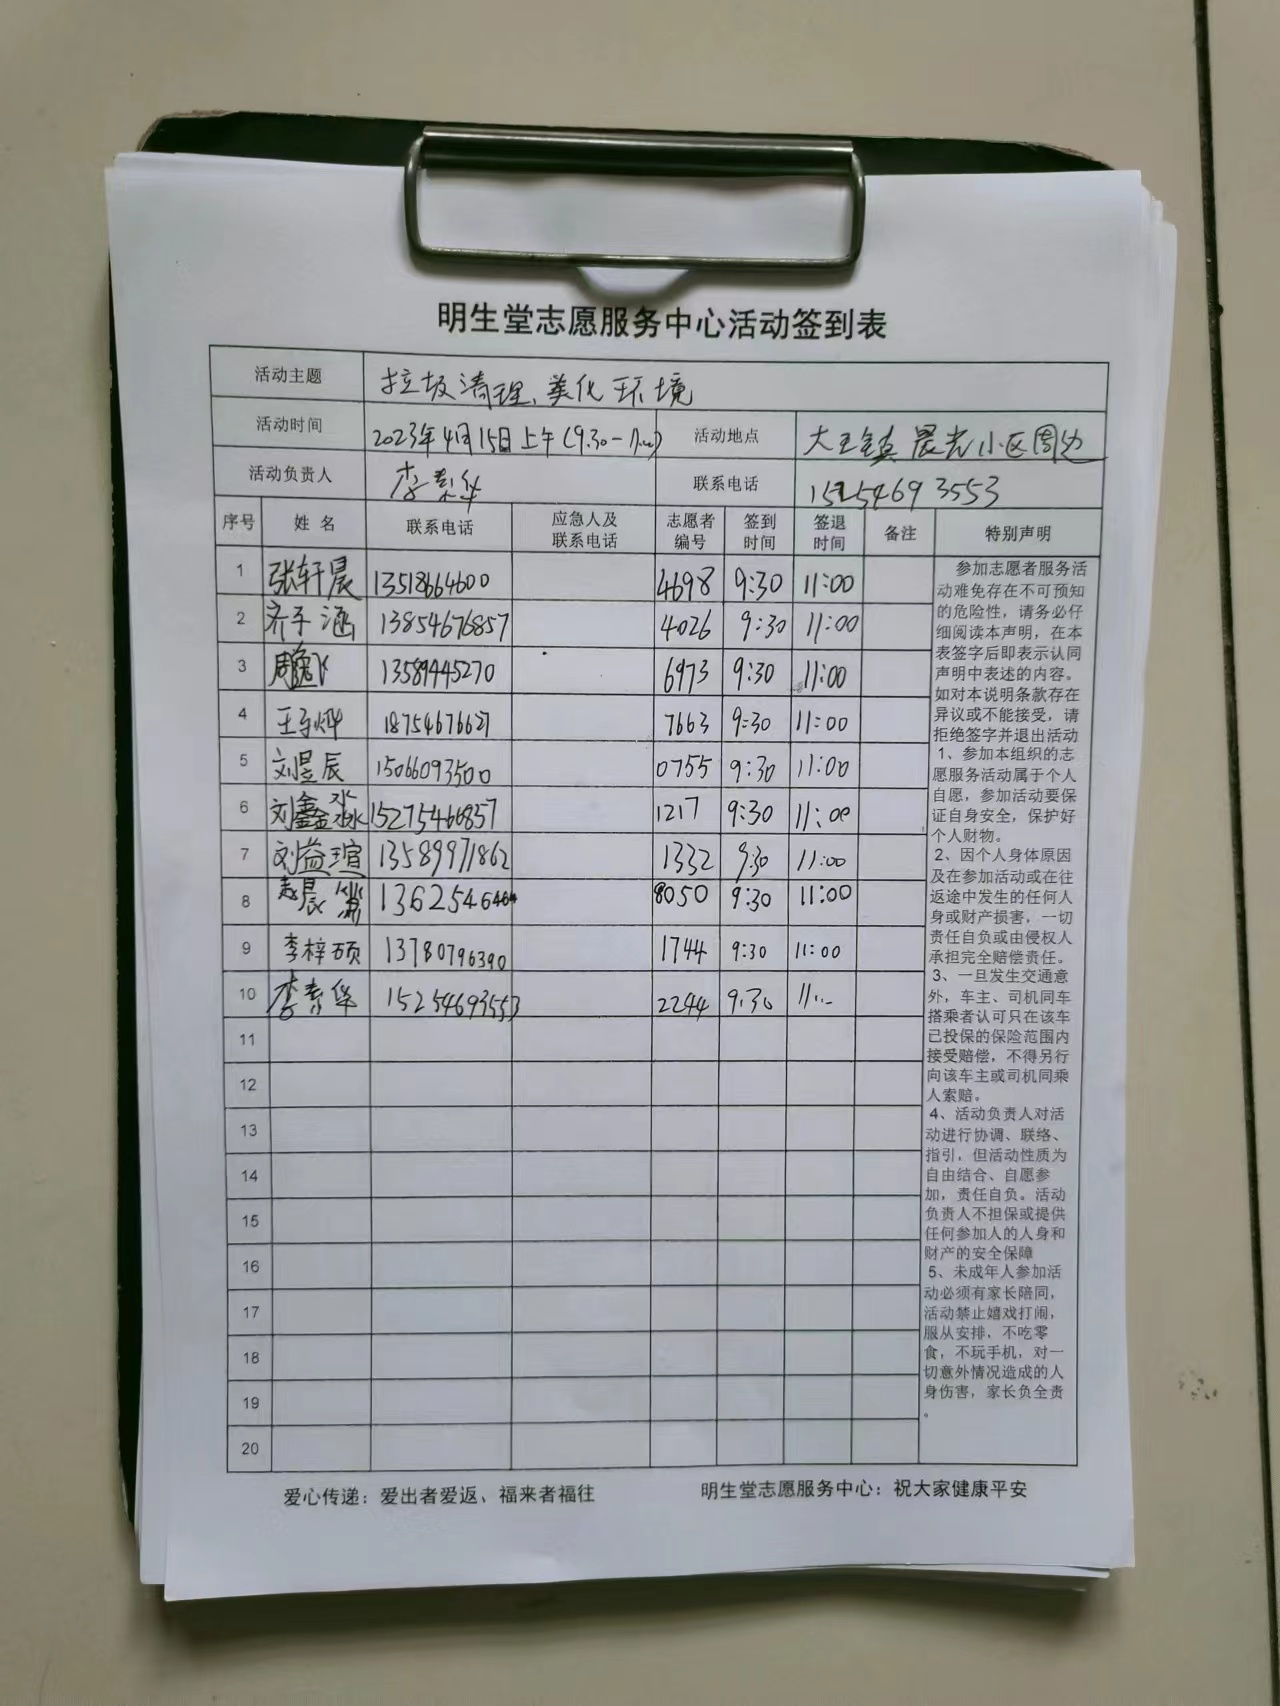 明生堂志愿服务中心活动签到表
活动主题 垃圾清理、美化环境
活动时间 2023年4月15日上午(9:30- 活动地点 大王镇晨光小区周边
活动负责人 李素华 联系电话 15254693553
序号 姓名 联系电话 应急人及联系电话 志愿者编号 签到时间 签退时间 备注 特别声明
1 张轩晨 13518664600 4698 9:30 11:00
2 齐子涵 13854676857 4026 9:30 11:00
3 周逸飞 13589445270 6973 9:30 11:00
4 王子烨 18754676627 7663 9:30 11:00
5 刘昱辰 15066093500 0755 9:30 11:00
6 刘鑫淼 15275466857 1217 9:30 11:00
7 刘益瑄 13589971862 1332 9:30 11:00
8 8050 9:30 11:00
9 李梓硕 13780796390 1744 9:30 11:00
10 李素华 15254693553 2244 9:30 11
11
12
13
14
15
16
17
18
19
20
参加志愿者服务活
动难免存在不可预知
的危险性，请务必仔
细阅读本声明，在本
表签字后即表示认同
声明中表述的内容。
如对本说明条款存在
异议或不能接受，请
拒绝签字并退出活动
1、参加本组织的志
愿服务活动属于个人
自愿，参加活动要保
证自身安全，保护好
个人财物。
2、因个人身体原因
及在参加活动或在往
返途中发生的任何人
身或财产损害，一切
责任自负或由侵权人
承担完全赔偿责任。
3、一旦发生交通意
外，车主、司机同车
搭乘者认可只在该车
已投保的保险范围内
接受赔偿，不得另行
向该车主或司机同乘
人索赔。
4、活动负责人对活
动进行协调、联络、
指引，但活动性质为
自由结合、自愿参
加，责任自负。活动
负责人不担保或提供
任何参加人的人身和
财产的安全保障
5、未成年人参加活
动必须有家长陪同，
活动禁止嬉戏打闹，
服从安排，不吃零
食，不玩手机，对一
切意外情况造成的人
身伤害，家长负全责
。
爱心传递：爱出者爱返、福来者福往 明生堂志愿服务中心：祝大家健康平安